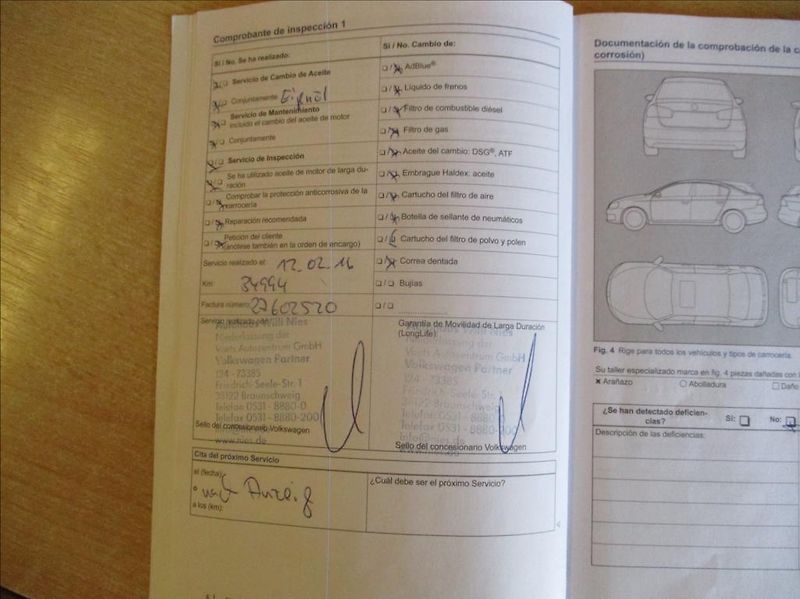 Comprobante de inspección 1
Sí / No. Se ha realizado:
Servicio de Cambio de Aceite
Conjuntamente
Servicio de Mantenimiento
incluido el cambio del aceite de motor
Conjuntamente
Servicio de Inspección
Se ha utilizado aceite de motor de larga du-
ración
Comprobar la protección anticorrosiva de la
carrocería
Reparación recomendada
Petición del cliente
(anótese también en la orden de encargo)
Servicio realizado el: 12.02.16
Km: 34994
Factura número: 27602520
Servicio realizado por:
Autohaus Willi Nies
Niederlassung der
Voets Autozentrum GmbH
Volkswagen Partner
124 - 73385
Friedrich-Seele-Str. 1
38122 Braunschweig
Telefon 0531 - 8880-0
Telefax 0531 - 8880-200
Sello del concesionario Volkswagen
www.nies.de
Sí / No. Cambio de:
AdBlue®
Líquido de frenos
Filtro de combustible diésel
Filtro de gas
Aceite del cambio: DSG®, ATF
Embrague Haldex: aceite
Cartucho del filtro de aire
Botella de sellante de neumáticos
Cartucho del filtro de polvo y polen
Correa dentada
Bujías
Garantía de Movilidad de Larga Duración
(LongLife):
Willi Nies
Niederlassung der
Voets Autozentrum GmbH
Volkswagen Partner
124 - 73385
Friedrich-Seele-Str. 1
38122 Braunschweig
Telefon 0531 - 8880-0
Telefax 0531 - 8880-200
Sello del concesionario Volkswagen
Cita del próximo Servicio
el (fecha):
o nach Anzeig
a los (km):
¿Cuál debe ser el próximo Servicio?
Documentación de la comprobación de la
corrosión)
Fig. 4 Rige para todos los vehículos y tipos de carrocería.
Su taller especializado marca en fig. 4 piezas dañadas con
Arañazo Abolladura
¿Se han detectado deficien-
cias? Sí: No:
Descripción de las deficiencias: